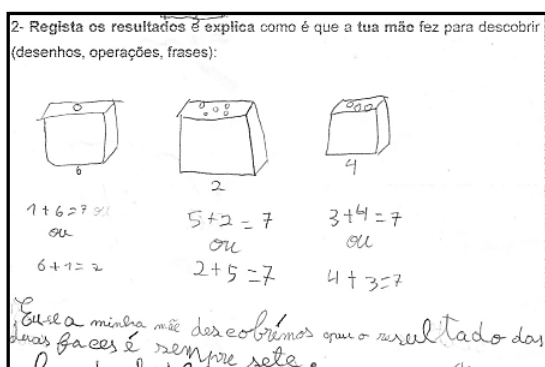 2- Regista os resultados e explica como é que a tua mãe fez para descobrir
(desenhos, operações, frases):
6
2
4
1 + 6 = 7
5 + 2 = 7
3 + 4 = 7
ou
ou
ou
6 + 1 = 7
2 + 5 = 7
4 + 3 = 7
Eu e a minha mãe descobrimos que o resultado das
duas faces é sempre sete.